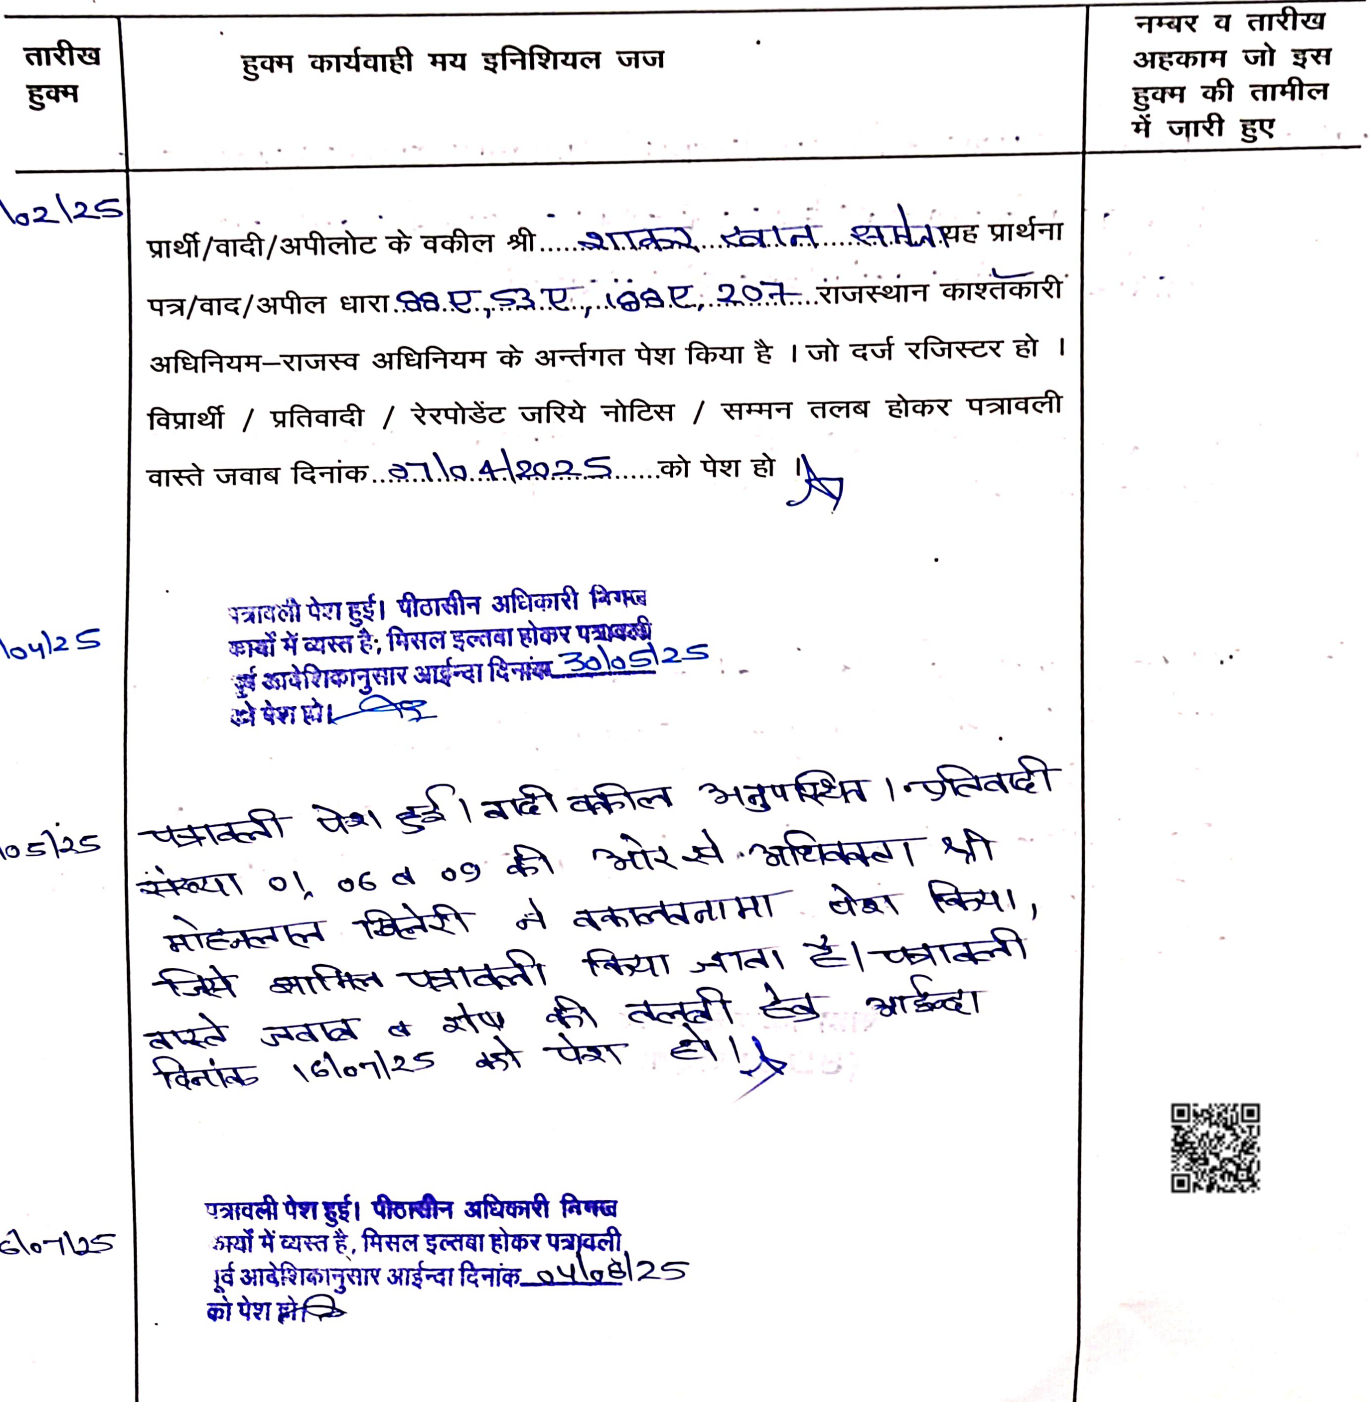 तारीख
हुक्म
हुक्म कार्यवाही मय इनिशियल जज
नम्बर व तारीख
अहकाम जो इस
हुक्म की तामील
में जारी हुए
\02/25
प्रार्थी/वादी/अपीलोट के वकील श्री.....शाकर खान.....यह प्रार्थना
पत्र/वाद/अपील धारा..88ए,53ए,188ए,207...राजस्थान काश्तकारी
अधिनियम–राजस्व अधिनियम के अर्न्तगत पेश किया है । जो दर्ज रजिस्टर हो ।
विप्रार्थी / प्रतिवादी / रेरपोडेंट जरिये नोटिस / सम्मन तलब होकर पत्रावली
वास्ते जवाब दिनांक...07/04/2025......को पेश हो ।
\04/25
पत्रावली पेश हुई। पीठासीन अधिकारी
कार्यों में व्यस्त है; मिसल इल्तबा होकर पत्रावली
पूर्व आदेशिकानुसार आईन्दा दिनांक 30/05/25
को पेश हो।
\05/25
पत्रावली पेश हुई। वादी वकील अनुपस्थित। प्रतिवादी
संख्या 01, 06 व 09 की ओर से अधिवक्ता श्री
मोहनलाल ने वकालतनामा पेश किया,
जिसे शामिल पत्रावली किया जाता है। पत्रावली
वास्ते जवाब व शेष की तलबी हेतु आईन्दा
दिनांक 16/07/25 को पेश हो।
6/07/25
पत्रावली पेश हुई। पीठासीन अधिकारी
कार्यों में व्यस्त है, मिसल इल्तबा होकर पत्रावली
पूर्व आदेशिकानुसार आईन्दा दिनांक 04/08/25
को पेश हो